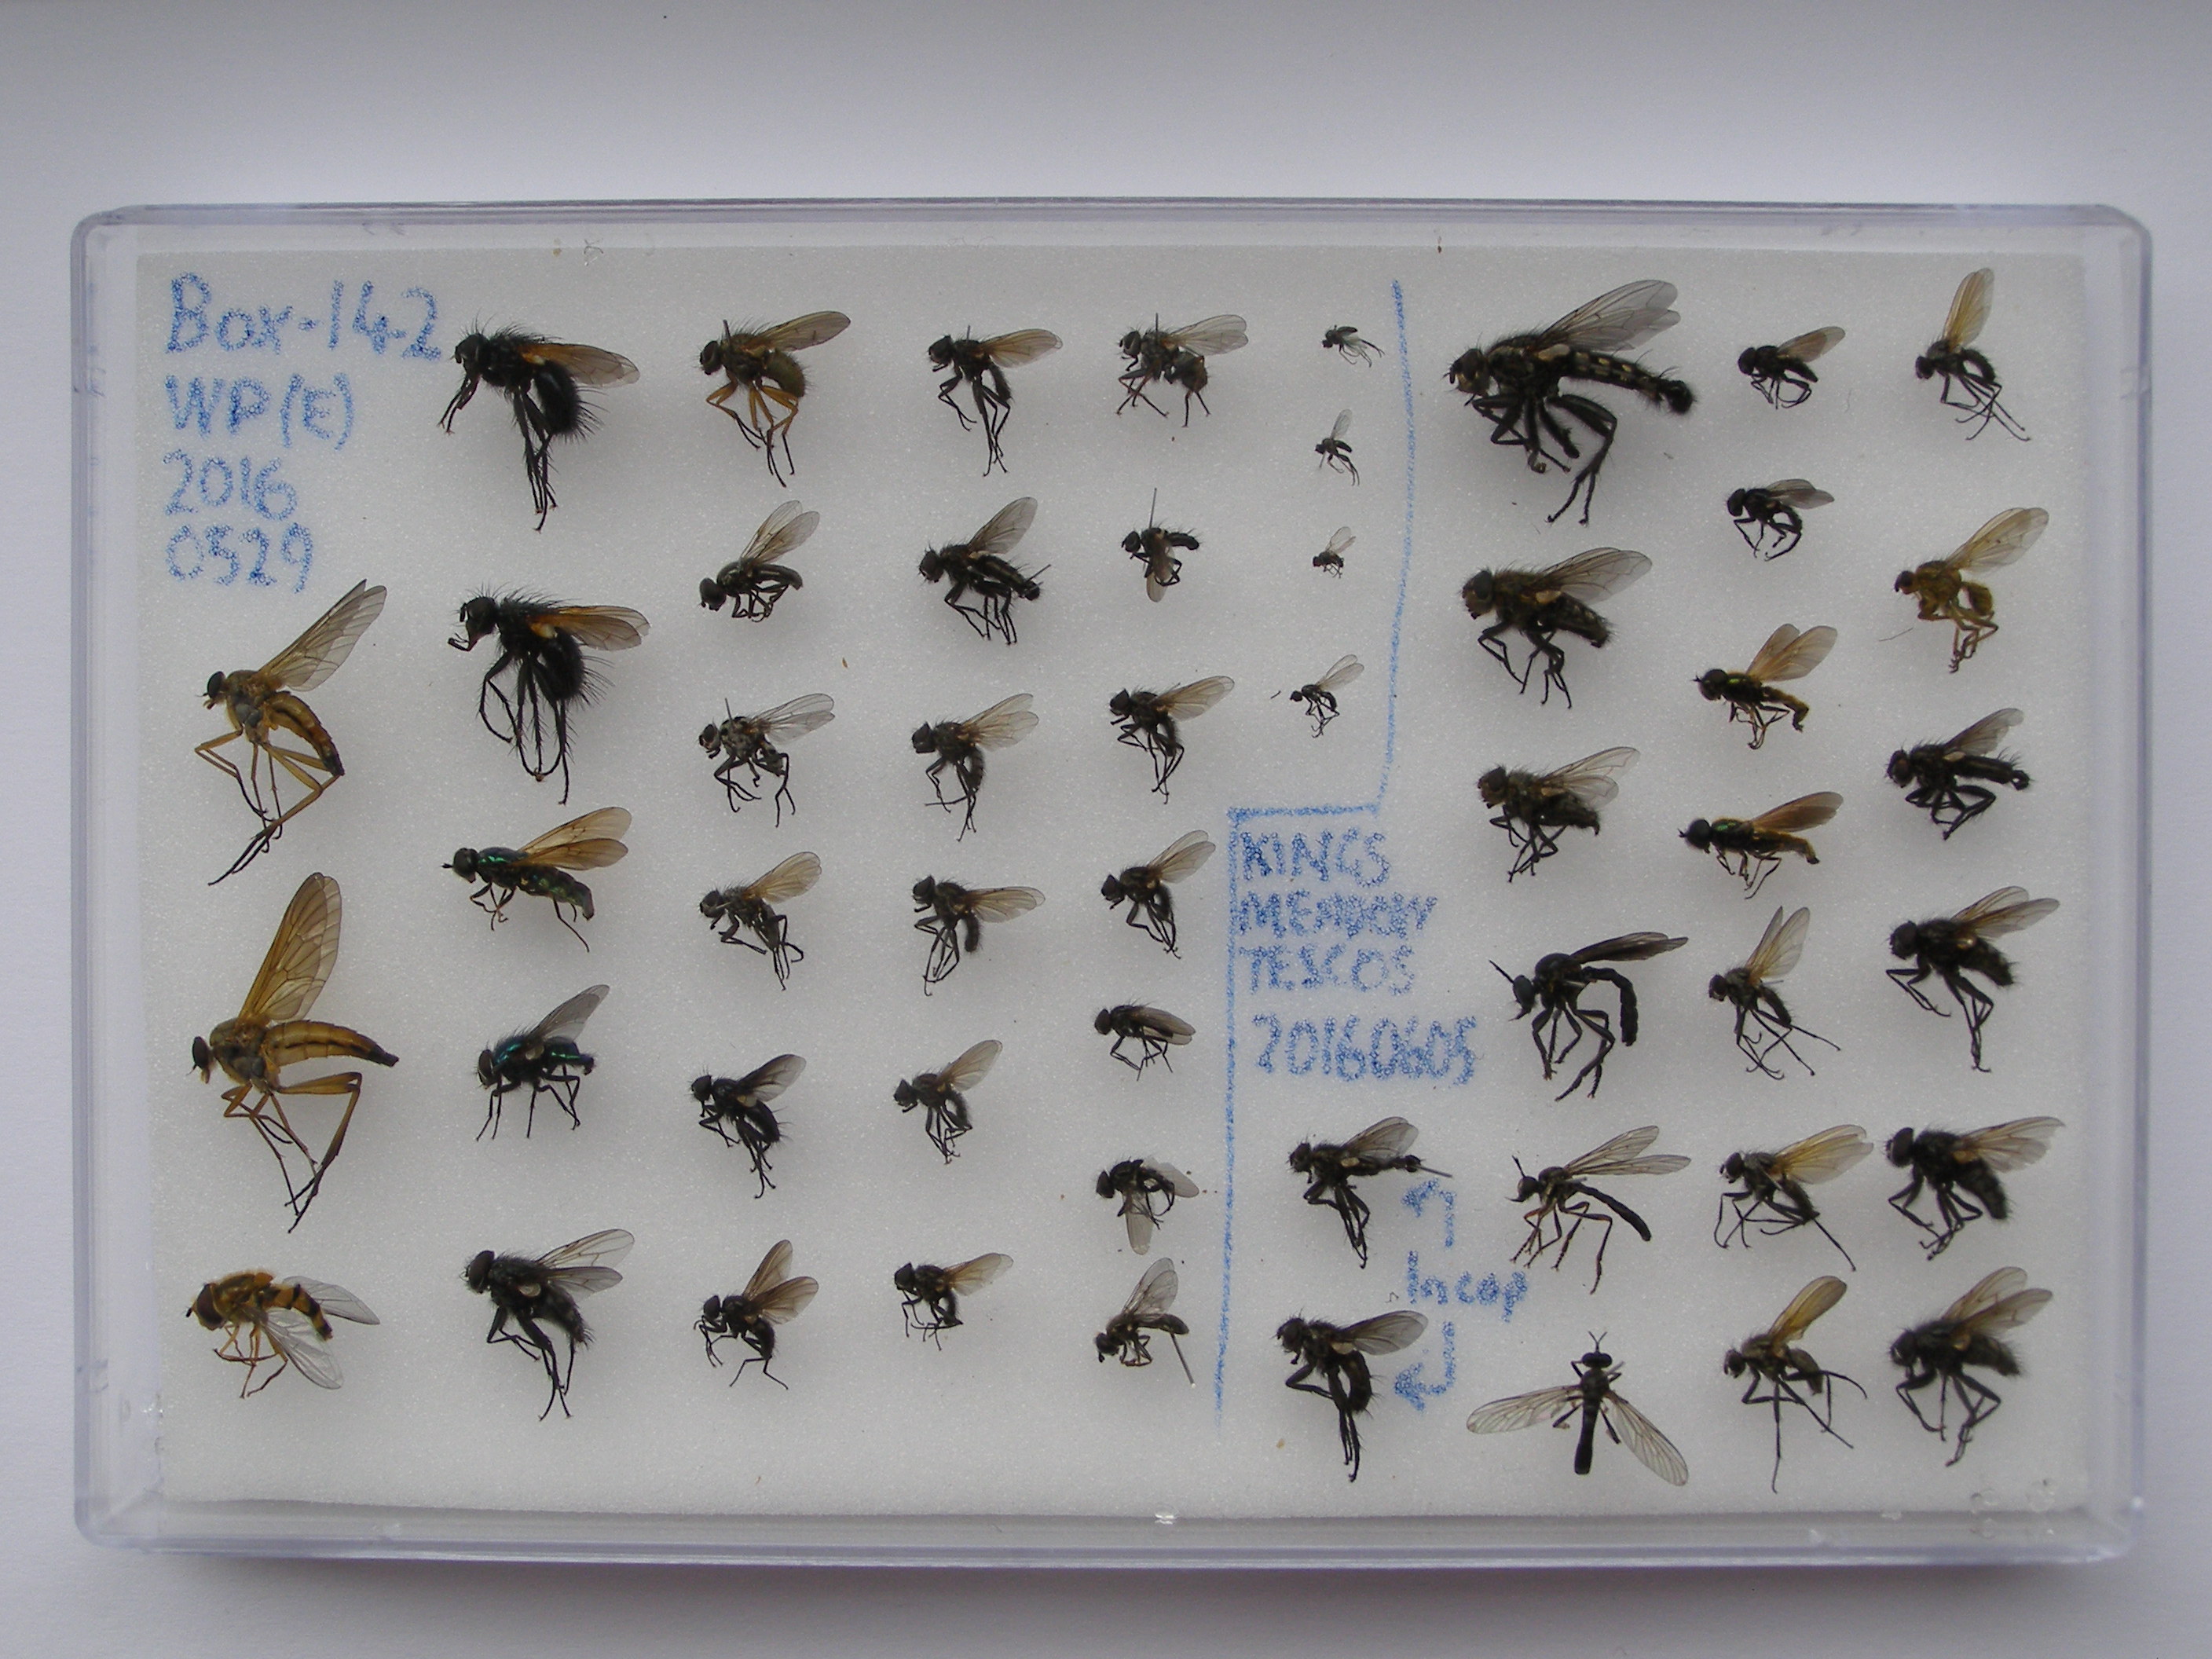 Box-14-2
WP(E)
2016
0529
KINGS
MEADOW
TESCOS
20160605
In cop